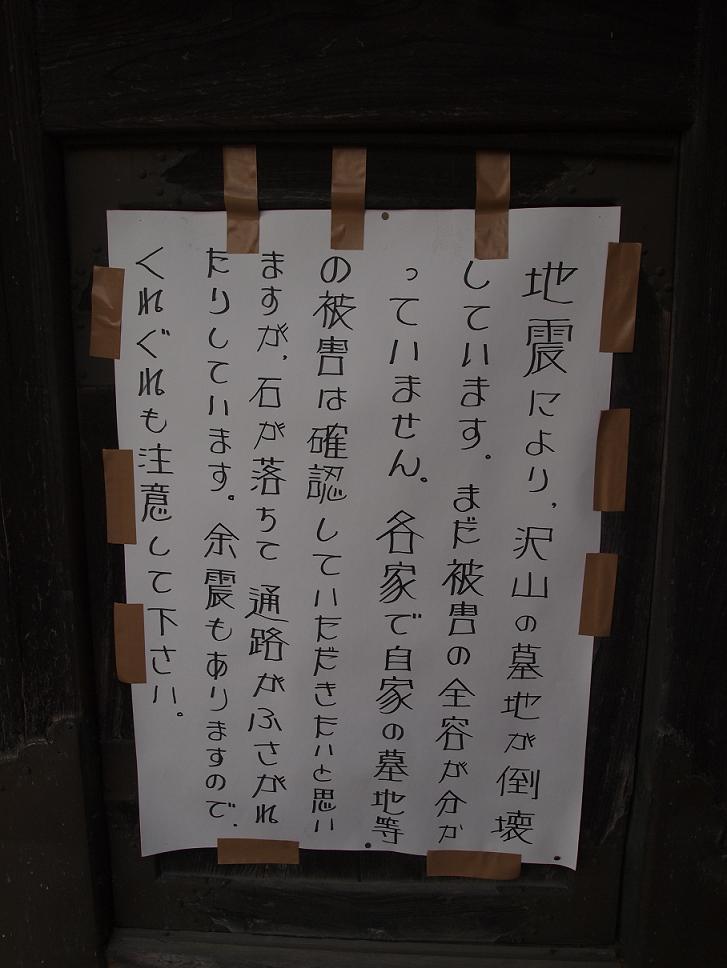 地震により、沢山の墓地が倒壊
しています。まだ被害の全容が分か
っていません。各家で自家の墓地等
の被害は確認していただきたいと思い
ますが、石が落ちて通路がふさがれ
たりしています。余震もありますので、
くれぐれも注意して下さい。